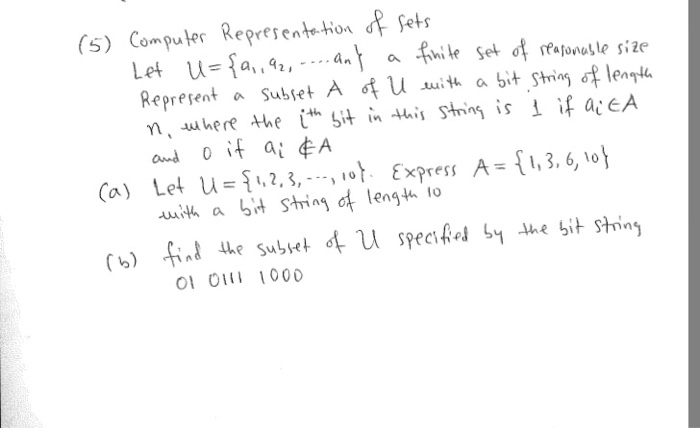 (5) Computer Representation of sets
Let U = {a₁, a₂, ---- aₙ} a finite set of reasonable size
Represent a subset A of U with a bit string of length
n, where the iᵗʰ bit in this string is 1 if aᵢ ∈ A
and 0 if aᵢ ∉ A
(a) Let U = {1, 2, 3, ---, 10}. Express A = {1, 3, 6, 10}
with a bit string of length 10
(b) find the subset of U specified by the bit string
01 0111 1000